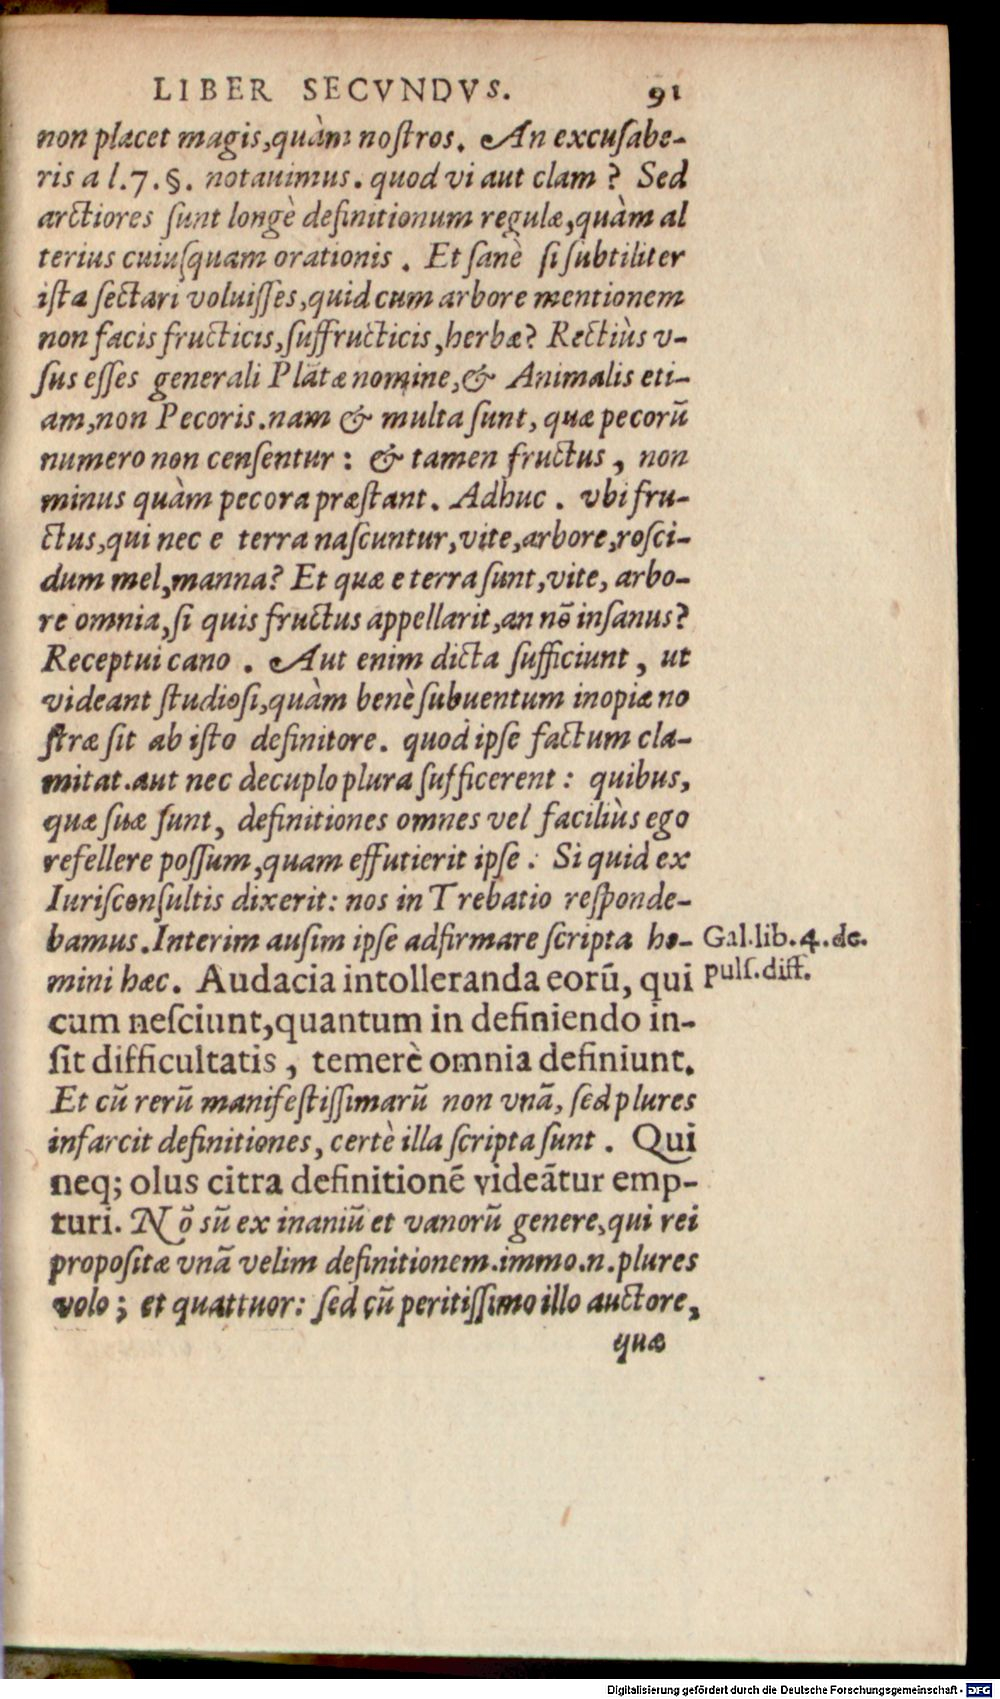 LIBER SECVNDVS. 91
non placet magis, quàm noſtros. An excuſabe-
ris a l.7.§. notauimus. quod vi aut clam? Sed
arctiores ſunt longè definitionum regulæ, quàm al
terius cuiuſquam orationis. Et ſanè ſi ſubtiliter
iſta ſectari voluiſſes, quid cum arbore mentionem
non facis fructicis, ſuffructicis, herbæ? Rectiùs v-
ſus eſſes generali Plātæ nomine, & Animalis eti-
am, non Pecoris. nam & multa ſunt, quæ pecorū
numero non cenſentur: & tamen fructus, non
minus quàm pecora præſtant. Adhuc. vbi fru-
ctus, qui nec e terra naſcuntur, vite, arbore, roſci-
dum mel, manna? Et quæ e terra ſunt, vite, arbo-
re omnia, ſi quis fructus appellarit, an nō inſanus?
Receptui cano. Aut enim dicta ſufficiunt, ut
videant ſtudioſi, quàm benè ſubuentum inopiæ no
ſtræ ſit ab iſto definitore. quod ipſe factum cla-
mitat. aut nec decuplo plura ſufficerent: quibus,
quæ ſuæ ſunt, definitiones omnes vel faciliùs ego
refellere poſſum, quam effutierit ipſe. Si quid ex
Iuriſconſultis dixerit: nos in Trebatio reſponde-
bamus. Interim auſim ipſe adfirmare ſcripta ho- Gal.lib.4.de.
mini hæc. Audacia intolleranda eorū, qui pulſ.diff.
cum neſciunt, quantum in definiendo in-
ſit difficultatis, temerè omnia definiunt.
Et cū rerū manifeſtiſſimarū non vnā, ſed plures
infarcit definitiones, certè illa ſcripta ſunt. Qui
neq; olus citra definitionē videātur emp-
turi. Nō sū ex inaniū et vanorū genere, qui rei
propoſitæ vnā velim definitionem. immo.n. plures
volo; et quattuor: ſed cū peritiſſimo illo auctore,
quæ
Digitalisierung gefördert durch die Deutsche Forschungsgemeinschaft - DFG